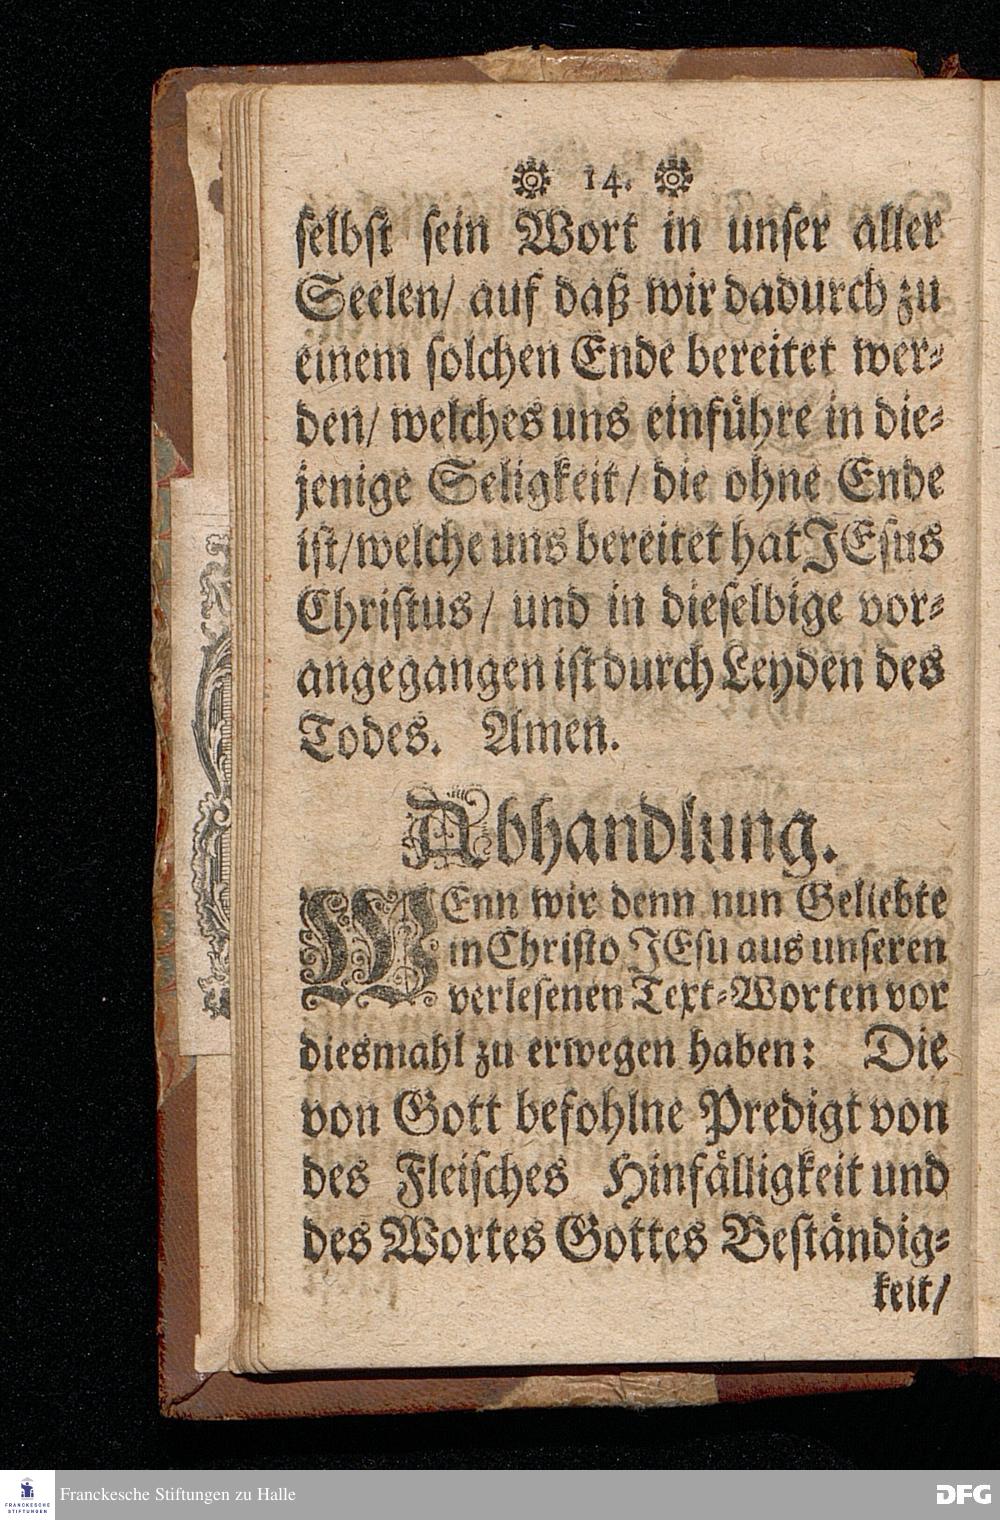 14.
selbst sein Wort in unser aller
Seelen/ auf daß wir dadurch zu
einem solchen Ende bereitet wer-
den/ welches uns einführe in die-
jenige Seligkeit/ die ohne Ende
ist/ welche uns bereitet hat JEsus
Christus/ und in dieselbige vor-
angegangen ist durch Leyden des
Todes. Amen.
Abhandlung.
WEnn wir denn nun Geliebte
in Christo JEsu aus unseren
verlesenen Text-Worten vor
diesmahl zu erwegen haben: Die
von Gott befohlne Predigt von
des Fleisches Hinfälligkeit und
des Wortes Gottes Beständig-
keit/
FRANCKESCHE
STIFTUNGEN
Franckesche Stiftungen zu Halle
DFG